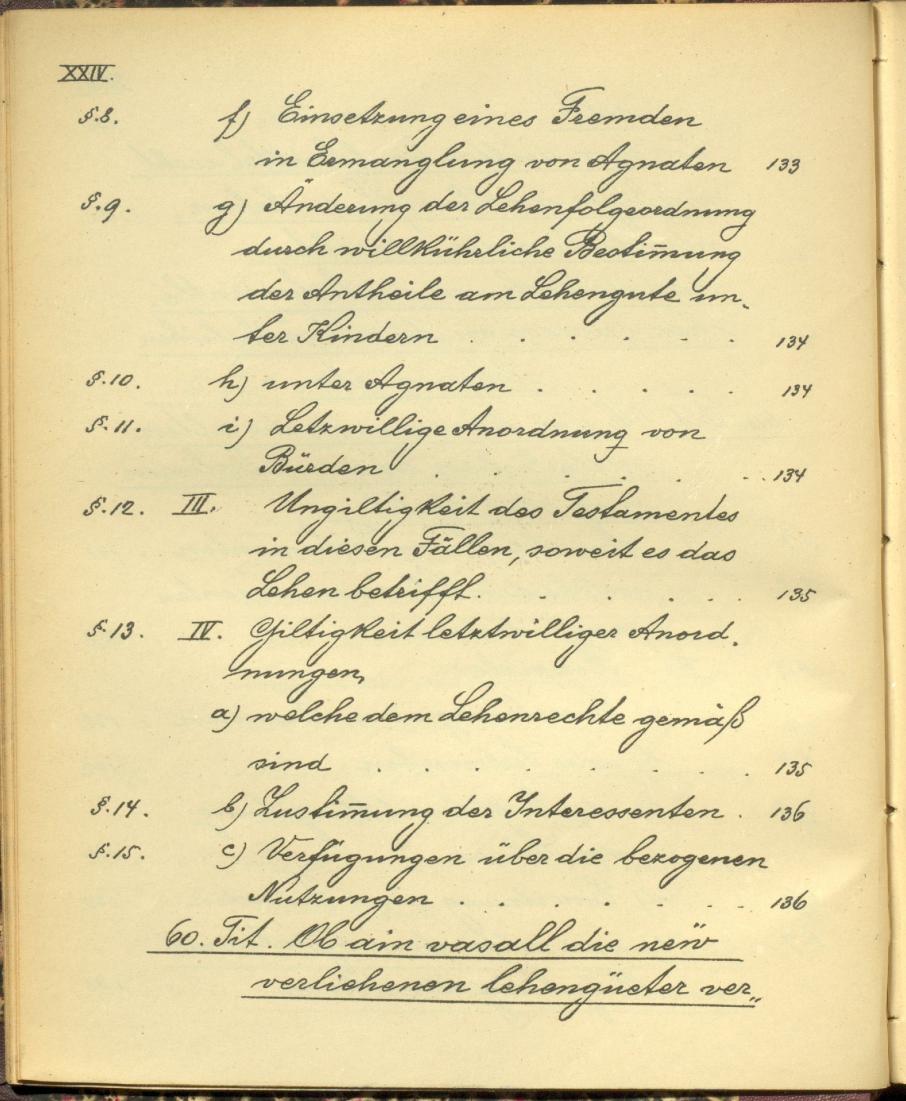 XXIV.
§.8. f) Einsetzung eines Fremden
in Ermanglung von Agnaten 133
§.9. g) Änderung der Lehenfolgeordnung
durch willkührliche Bestim̄ung
der Antheile am Lehengute un-
ter Kindern . . . . . . 134
§.10. h) unter Agnaten . . . . . 134
§.11. i) Letzwillige Anordnung von
Bürden . . . . . . 134
§.12. III. Ungiltigkeit des Testamentes
in diesen Fällen, soweit es das
Lehen betrifft. . . . . . 135
§.13. IV. Giltigkeit letztwilliger Anord-
nungen,
a) welche dem Lehenrechte gemäß
sind . . . . . . . 135
§.14. b) Zustim̄ung der Interessenten . 136
§.15. c) Verfügungen über die bezogenen
Nutzungen . . . . . . 136
60. Tit. Ob ain vasall die neẅ
verliehenen lehengüeter ver„